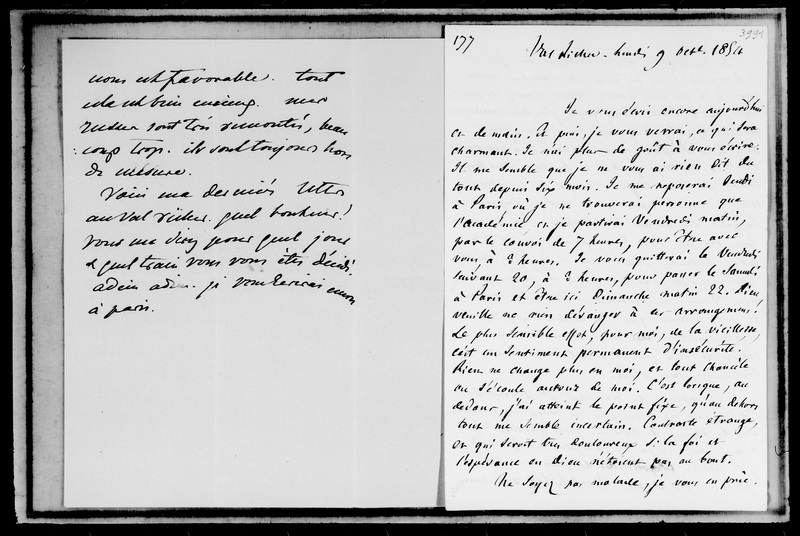 nous est favorable. tout
cela est bien
sont très remontés, beau
coup trop. ils sont toujours hors
de mesure.
Voici ma dernière lettre
au Val Richer. quel bonheur!
vous me direz pour quel jour
& quel train vous vous êtes décidé
adieu adieu. je vous écrirai encore
à paris.
177
3991
Val Richer. Lundi 9 Octe. 1854
Je vous écris encore aujourd'hui
et demain. Et puis, je vous verrai, ce qui sera
charmant. Je n'ai plus de goût à vous écrire.
Il me semble que je ne vous ai rien dit du
tout depuis six mois. Je me reposerai Jeudi
à Paris où je ne trouverai personne que
l'académie, et je partirai Vendredi matin,
par le convoi de 7 heures, pour être avec
vous, à 2 heures. Je vous quitterai le Vendredi
suivant 20, à 2 heures, pour passer le Samedi
à Paris et être ici Dimanche matin 22. Dieu
veuille ne rien déranger à ces arrangemens!
Le plus sensible effet, pour moi, de la vieillesse,
c'est un sentiment permanent d'insécurité.
Rien ne change plus en moi, et tout chancèle
ou s'écoule autour de moi. C'est lorsque, au
dedans, j'ai atteint le point fixe, qu'au dehors
tout me semble incertain. Contraste étrange,
et qui seroit très douloureux si la foi et
l'espérance en Dieu n'étoient pas au bout.
Ne soyez pas malade, je vous en prie.